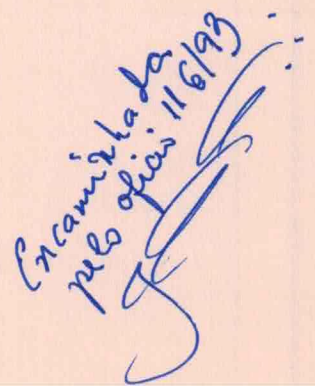 Encaminhada
pelo oficio 116/93